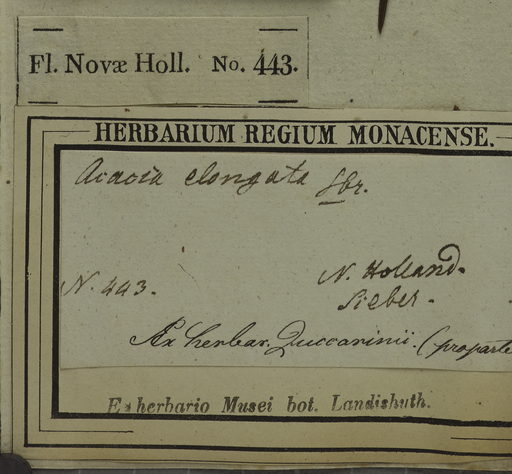 Fl. Novæ Holl. No. 443.
HERBARIUM REGIUM MONACENSE.
Acacia elongata Sbr.
N. 443.
N. Holland.
Sieber.
Ex herbar. Zuccarinii. (proparte
Ex herbario Musei bot. Landishuth.